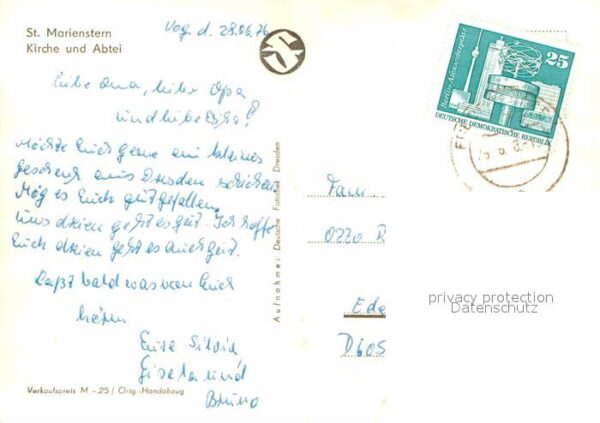 St. Marienstern
Kirche und Abtei
Vog. d. 28.06.76
Liebe Oma, lieber Opa
und liebe
Möchte Euch gerne ein kleines
Geschenk aus Dresden schicken
Mög es Euch gut gefallen,
Uns dreien geht es gut. Ich hoffe
Euch dreien geht es auch gut.
Laßt bald was von Euch
hören
Eure Silvia
Gisela und
Bruno
Verkaufspreis M –,25 / Orig.-Handabzug
Aufnahme: Deutsche Fotothek Dresden
Berlin-Alexanderplatz
25
DEUTSCHE DEMOKRATISCHE REPUBLIK
Fam
privacy protection
Datenschutz